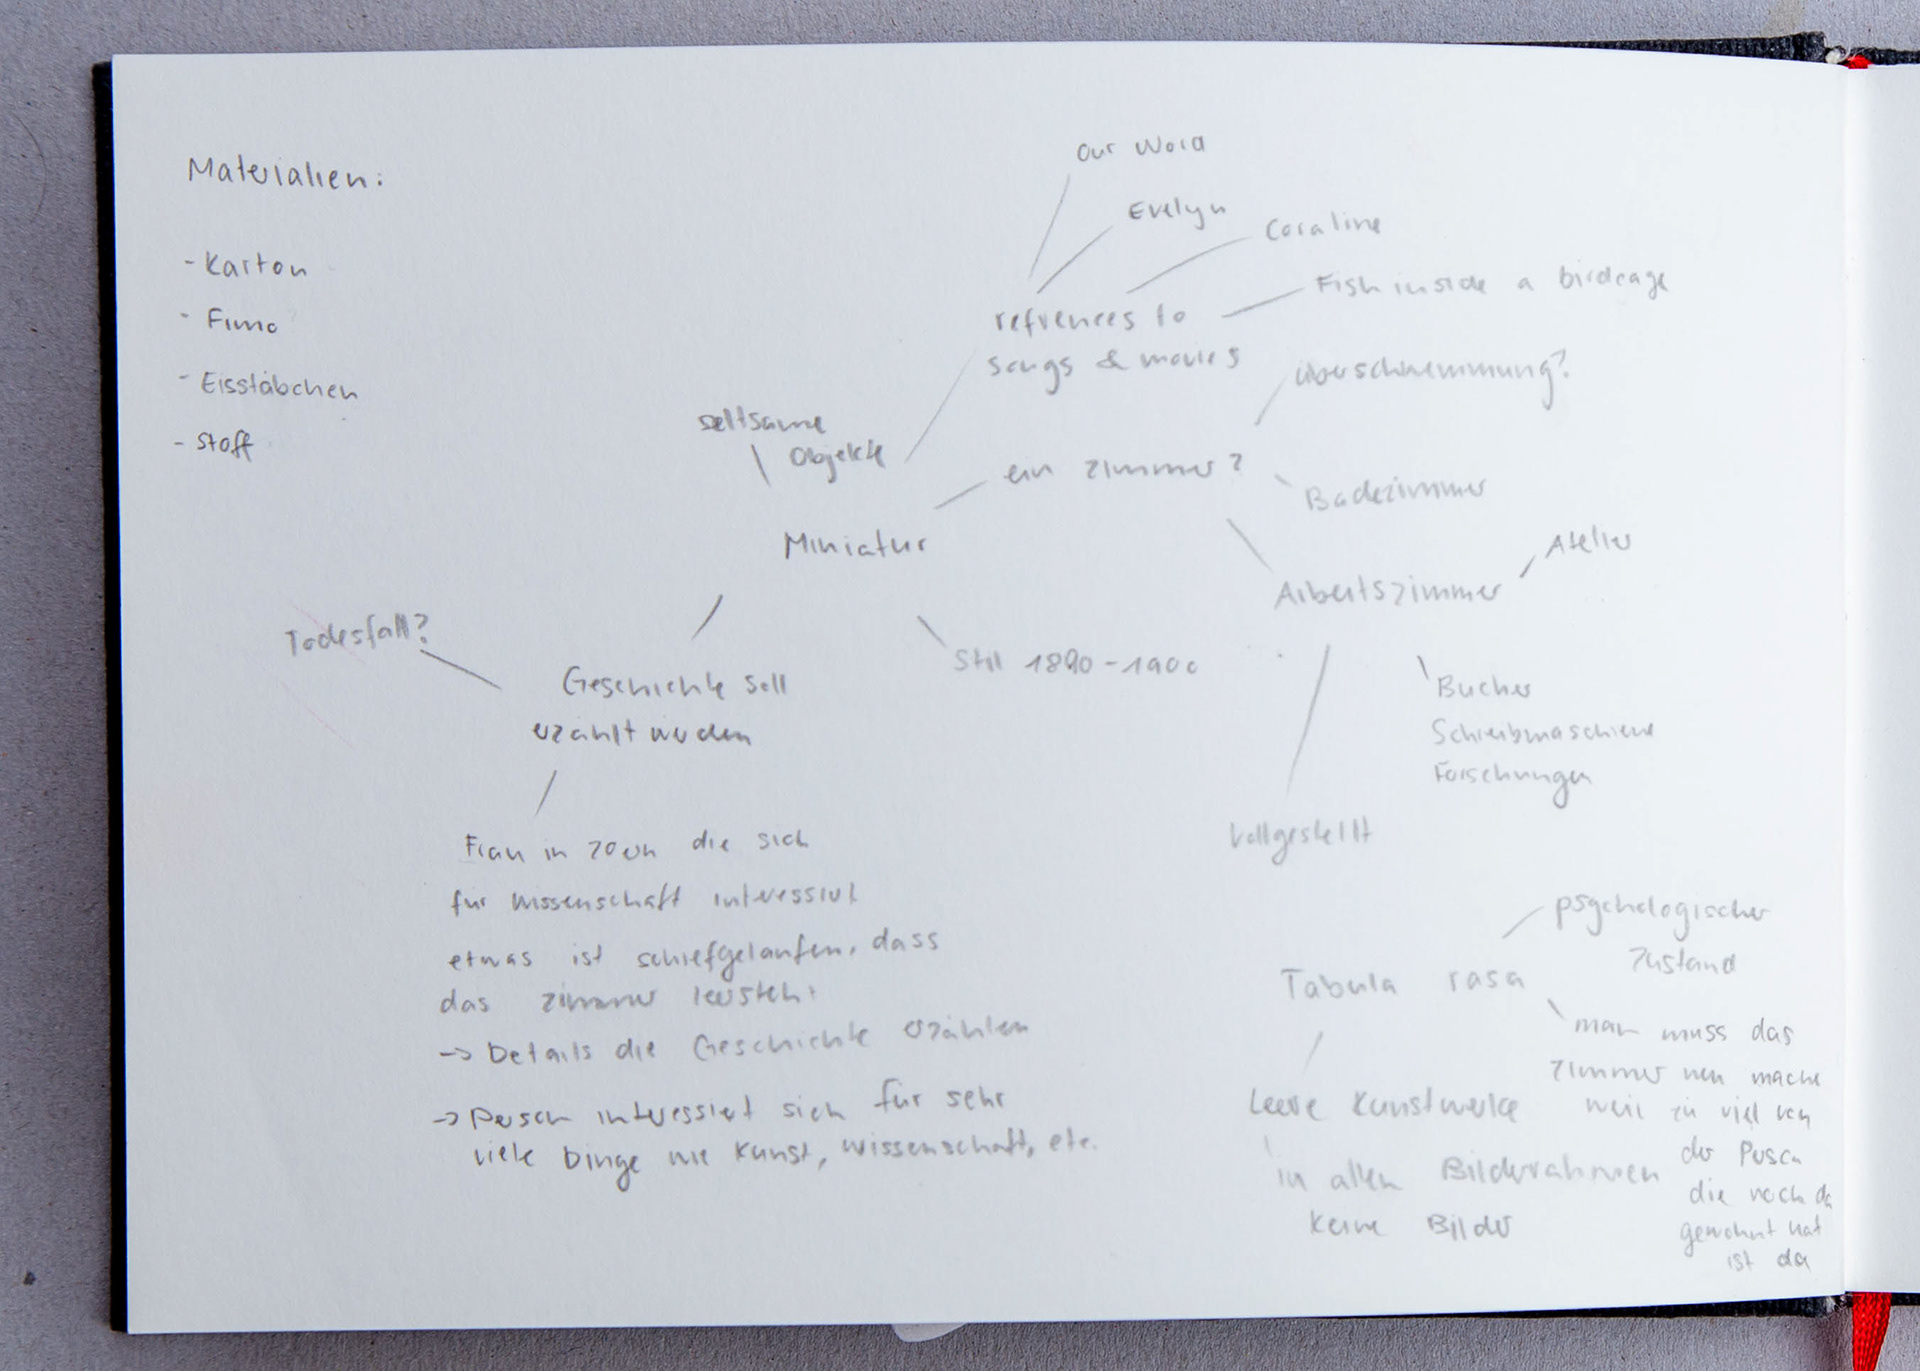 Materialien:
- Karton
- Fimo
- Eisstäbchen
- Stoff
our
Evelyn
Coraline
Fish inside a birdcage
refrences to
songs & movies
überschwemmung?
seltsame
Objekte
ein Zimmer?
Badezimmer
Miniatur
Atelier
Arbeitszimmer
Todesfall?
Geschichte soll
erzählt werden
Stil 1890-1900
Bücher
Schreibmaschiene
Forschungen
Vollgestellt
Frau in 20ern die sich
für Wissenschaft interessiert
etwas ist schiefgelaufen, dass
das Zimmer leersteht
-> Details die Geschichte erzählen
-> Person interessiert sich für sehr
viele Dinge wie Kunst, Wissenschaft, etc.
psychologischer
Zustand
Tabula rasa
man muss das
Zimmer neu mache
weil zu viel von
der Person
die noch da
gewohnt hat
ist da
Leere Kunstwerke
in allen Bilderrahmen
keine Bilder